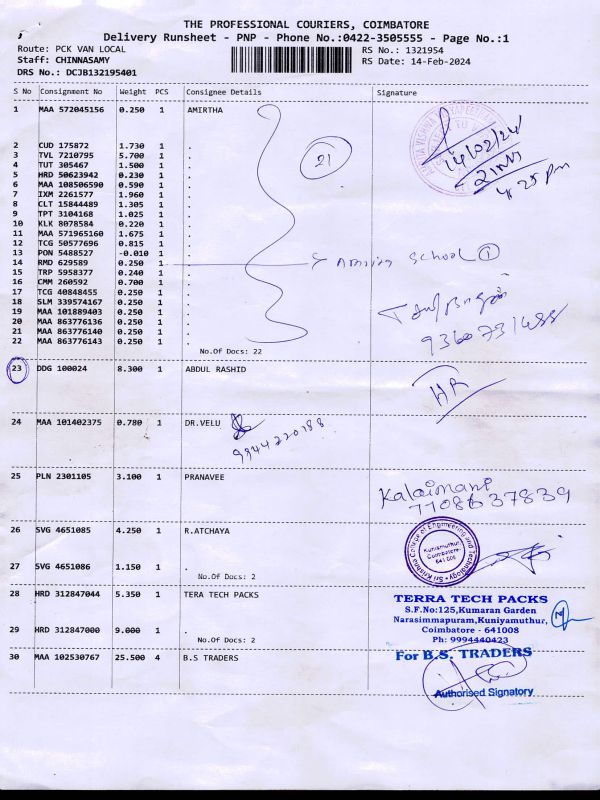 THE PROFESSIONAL COURIERS, COIMBATORE
Delivery Runsheet - PNP - Phone No.:0422-3505555 - Page No.:1
Route: PCK VAN LOCAL RS No.: 1321954
Staff: CHINNASAMY RS Date: 14-Feb-2024
DRS No.: DCJB132195401
S No Consignment No Weight PCS Consignee Details Signature
1 MAA 572045156 0.250 1 AMIRTHA
14/02/24
4.25 pm
2 CUD 175872 1.730 1 .
3 TVL 7210795 5.700 1 .
4 TUT 305467 1.500 1 .
5 HRD 50623942 0.230 1 .
6 MAA 108506590 0.590 1 .
7 IXM 2261577 1.960 1 .
8 CLT 15844489 1.305 1 .
9 TPT 3104168 1.025 1 .
10 KLK 8078584 0.220 1 .
11 MAA 571965160 1.675 1 .
12 TCG 50577696 0.815 1 .
13 PON 5488527 -0.010 1 .
14 RMD 629589 0.250 1 .
15 TRP 5958377 0.240 1 .
16 CMM 260592 0.700 1 .
17 TCG 40848455 0.250 1 .
18 SLM 339574167 0.250 1 .
19 MAA 101889403 0.250 1 .
20 MAA 863776136 0.250 1 .
21 MAA 863776140 0.250 1 .
22 MAA 863776143 0.250 1 .
21
School 1
9360731488
No.Of Docs: 22
23 DDG 100024 8.300 1 ABDUL RASHID
HR
24 MAA 101402375 0.780 1 DR.VELU
9944220188
25 PLN 2301105 3.100 1 PRANAVEE
Kalaimani
7708637839
26 SVG 4651085 4.250 1 R.ATCHAYA
Sri Krishna College of Engineering and Technology
Kuniamuthur, Coimbatore- 641 008
27 SVG 4651086 1.150 1 .
No.Of Docs: 2
28 HRD 312847044 5.350 1 TERA TECH PACKS
TERRA TECH PACKS
S.F.No:125,Kumaran Garden
Narasimmapuram,Kuniyamuthur,
Coimbatore - 641008
Ph: 9994440423
29 HRD 312847000 9.000 1 .
No.Of Docs: 2
30 MAA 102530767 25.500 4 B.S TRADERS
For B.S. TRADERS
Authorised Signatory